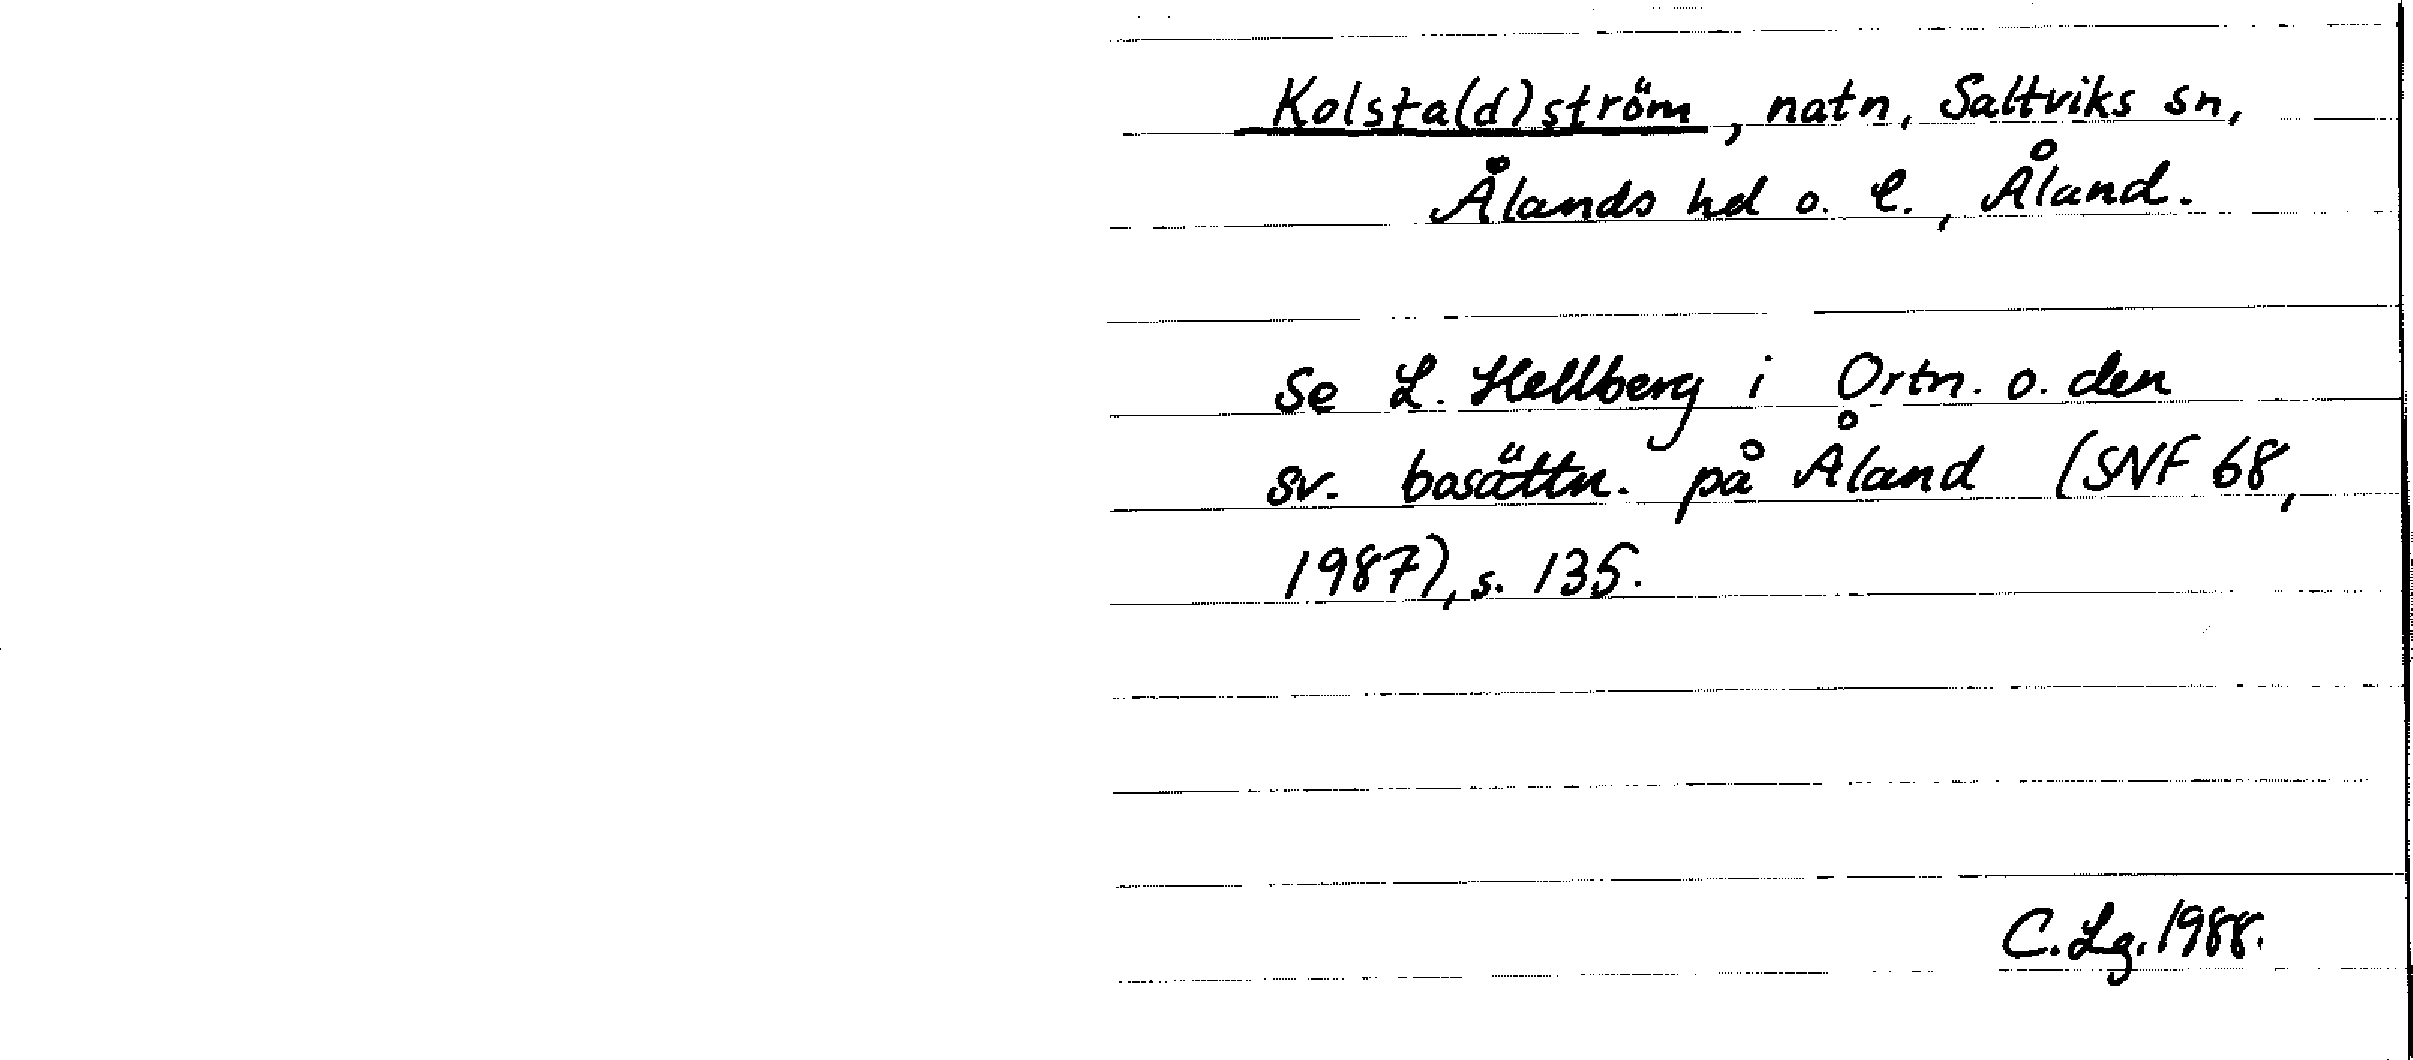 Kolsta(d)ström, natn, Saltviks sn,
Ålands hd o. l., Åland.
Se L. Hellberg i Ortn. o. den
sv. bosättn. på Åland (SNF 68,
1987), s. 135.
C. Lg. 1988.